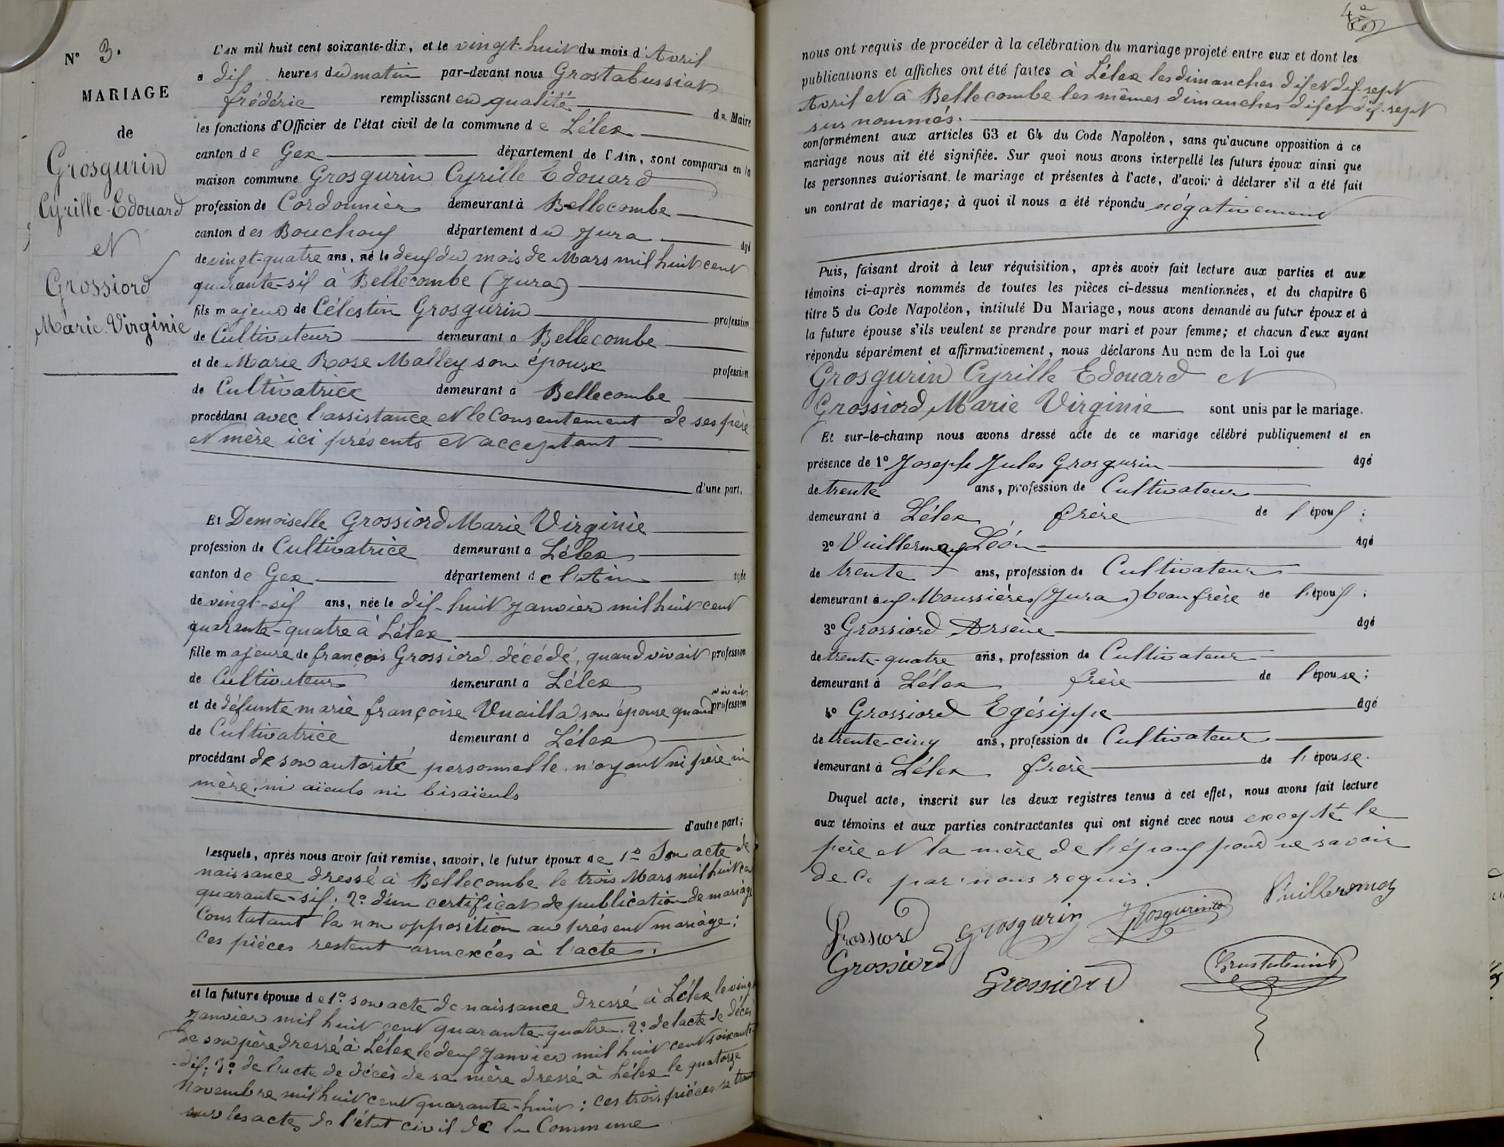 N° 3.
MARIAGE
de
Grosgurin
Cyrille-Edouard
et
Grossiord
Marie Virginie
L'AN mil huit cent soixante-dix, et le vingt-huit du mois d'Avril
a dix heures du matin par-devant nous Grostabussiat
frédéric remplissant en qualité de Maire
les fonctions d'Officier de l'état civil de la commune de Lélex
canton de Gex département de l'Ain, sont comparus en la
maison commune Grosgurin Cyrille Edouard
profession de Cordonnier demeurant à Bellecombe
canton des Bouchoux département du Jura âgé
de vingt-quatre ans, né le deux du mois de Mars mil huit cent
quarante-six à Bellecombe (Jura)
fils majeur de Célestin Grosgurin profession
de Cultivateur demeurant a Bellecombe
et de Marie Rose Malley son épouse profession
de Cultivatrice demeurant à Bellecombe
procédant avec l'assistance et le Consentement de ses père
et mère ici présents et acceptant
d'une part.
Et Demoiselle Grossiord Marie Virginie
profession de Cultivatrice demeurant a Lélex
canton de Gex département de l'Ain âgée
de vingt-six ans, née le dix-huit Janvier mil huit cent
quarante-quatre à Lélex
fille majeure de françois Grossiord décédé, quand vivait profession
de Cultivateur demeurant a Lélex
et de défunte marie françoise Vuailla son épouse quand vivait profession
de Cultivatrice demeurant à Lélex
procédant de son autorité personnelle n'ayant ni père ni
mère, ni aïeuls ni bisaïeuls
d'autre part;
Lesquels, après nous avoir fait remise, savoir, le futur époux de 1° Son acte de
naissance dressé à Bellecombe le trois Mars mil huit cent
quarante-six; 2° d'un certificat de publication de mariage
Constatant la non opposition au présent mariage;
Ces pièces restent annexées à l'acte.
et la future épouse de 1° son acte de naissance dressé à Lélex le vingt
Janvier mil huit cent quarante-quatre. 2° de l'acte de décès
de son père dressé à Lélex le deux Janvier mil huit cent soixante
-dix; 3° de l'acte de décès de sa mère dressé à Lélex le quatorze
Novembre mil huit cent quarante-huit; ces trois pièces se trouvent
sur les actes de l'état civil de la Commune
nous ont requis de procéder à la célébration du mariage projeté entre eux et dont les
publications et affiches ont été faites à Lélex les dimanches dix et dix-sept
Avril et à Bellecombe les mêmes dimanches dix et dix-sept
sus nommés.
conformément aux articles 63 et 64 du Code Napoléon, sans qu'aucune opposition à ce
mariage nous ait été signifiée. Sur quoi nous avons interpellé les futurs époux ainsi que
les personnes autorisant le mariage et présentes à l'acte, d'avoir à déclarer s'il a été fait
un contrat de mariage; à quoi il nous a été répondu négativement
Puis, faisant droit à leur réquisition, après avoir fait lecture aux parties et aux
témoins ci-après nommés de toutes les pièces ci-dessus mentionnées, et du chapitre 6
titre 5 du Code Napoléon, intitulé Du Mariage, nous avons demandé au futur époux et à
la future épouse s'ils veulent se prendre pour mari et pour femme; et chacun d'eux ayant
répondu séparément et affirmativement, nous déclarons Au nom de la Loi que
Grosgurin Cyrille Edouard et
Grossiord Marie Virginie sont unis par le mariage.
Et sur-le-champ nous avons dressé acte de ce mariage célébré publiquement et en
présence de 1° Joseph Jules Grosgurin âgé
de trente ans, profession de Cultivateur
demeurant à Lélex frère de l'époux;
2° Vuillermoz Léon âgé
de trente ans, profession de Cultivateur
demeurant aux Moussières (Jura) beau frère de l'époux;
3° Grossiord Arsène âgé
de trente-quatre ans, profession de Cultivateur
demeurant à Lélex frère de l'épouse;
4° Grossiord Egésippe âgé
de trente-cinq ans, profession de Cultivateur
demeurant à Lélex frère de l'épouse.
Duquel acte, inscrit sur les deux registres tenus à cet effet, nous avons fait lecture
aux témoins et aux parties contractantes qui ont signé avec nous excepté le
père et la mère de l'époux pour ne savoir
de ce par nous requis.
Grossiord Grosgurin Grosgurin Vuillermoz
Grossiord Grossiord